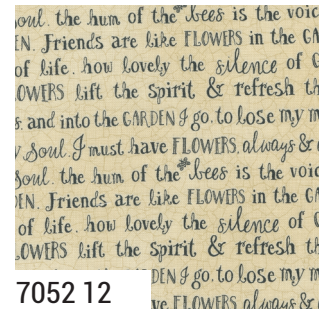 soul. the hum of the bees is the voic
EN. Friends are like FLOWERS in the GA
of life. how lovely the silence of G
OWERS lift the spirit & refresh th
s. and into the GARDEN I go. to lose my m
Soul. I must have FLOWERS. always &
soul. the hum of the bees is the voic
EN. Friends are like FLOWERS in the GA
of life. how lovely the silence of G
LOWERS lift the spirit & refresh th
DEN I go. to lose my m
ve FLOWERS. always &
7052 12